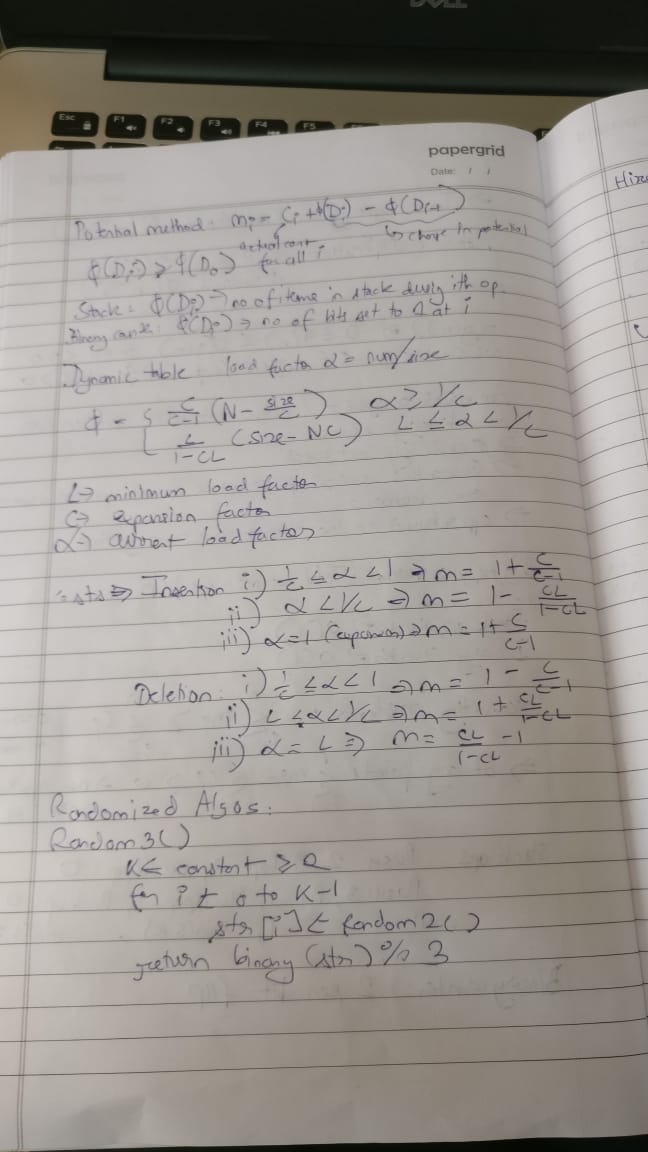 DELL
Esc F1 F2 F3 F4 F5
papergrid
Date: / /
Hize
Potential method: mᵢ = Cᵢ + ϕ(Dᵢ) − ϕ(Dᵢ₋₁)
actual cost ↳ change in potential
ϕ(Dᵢ) ≥ ϕ(D₀) for all i
Stack: ϕ(Dᵢ) → no of items in stack during ith op.
ϕ(Dᵢ) → no of bits set to 1 at i
Dynamic table load factor α = num/size
ϕ = { C/(C−1) (N − size/C) α ≥ 1/C
L/(1−CL) (size − NC) L ≤ α < 1/C
L → minimum load factor
C → expansion factor
α → current load factor
Insertion i) 1/C ≤ α < 1 ⇒ m = 1 + C/(C−1)
ii) α < 1/C ⇒ m = 1 − CL/(1−CL)
iii) α = 1 (expansion) ⇒ m = 1 + C/(C−1)
Deletion: i) 1/C ≤ α < 1 ⇒ m = 1 − C/(C−1)
ii) L ≤ α < 1/C ⇒ m = 1 + CL/(1−CL)
iii) α = L ⇒ m = CL/(1−CL) − 1
Randomized Algos:
Random3()
K ← constant ≥ 2
for i ← 0 to K−1
str[i] ← Random2()
return binary(str) % 3